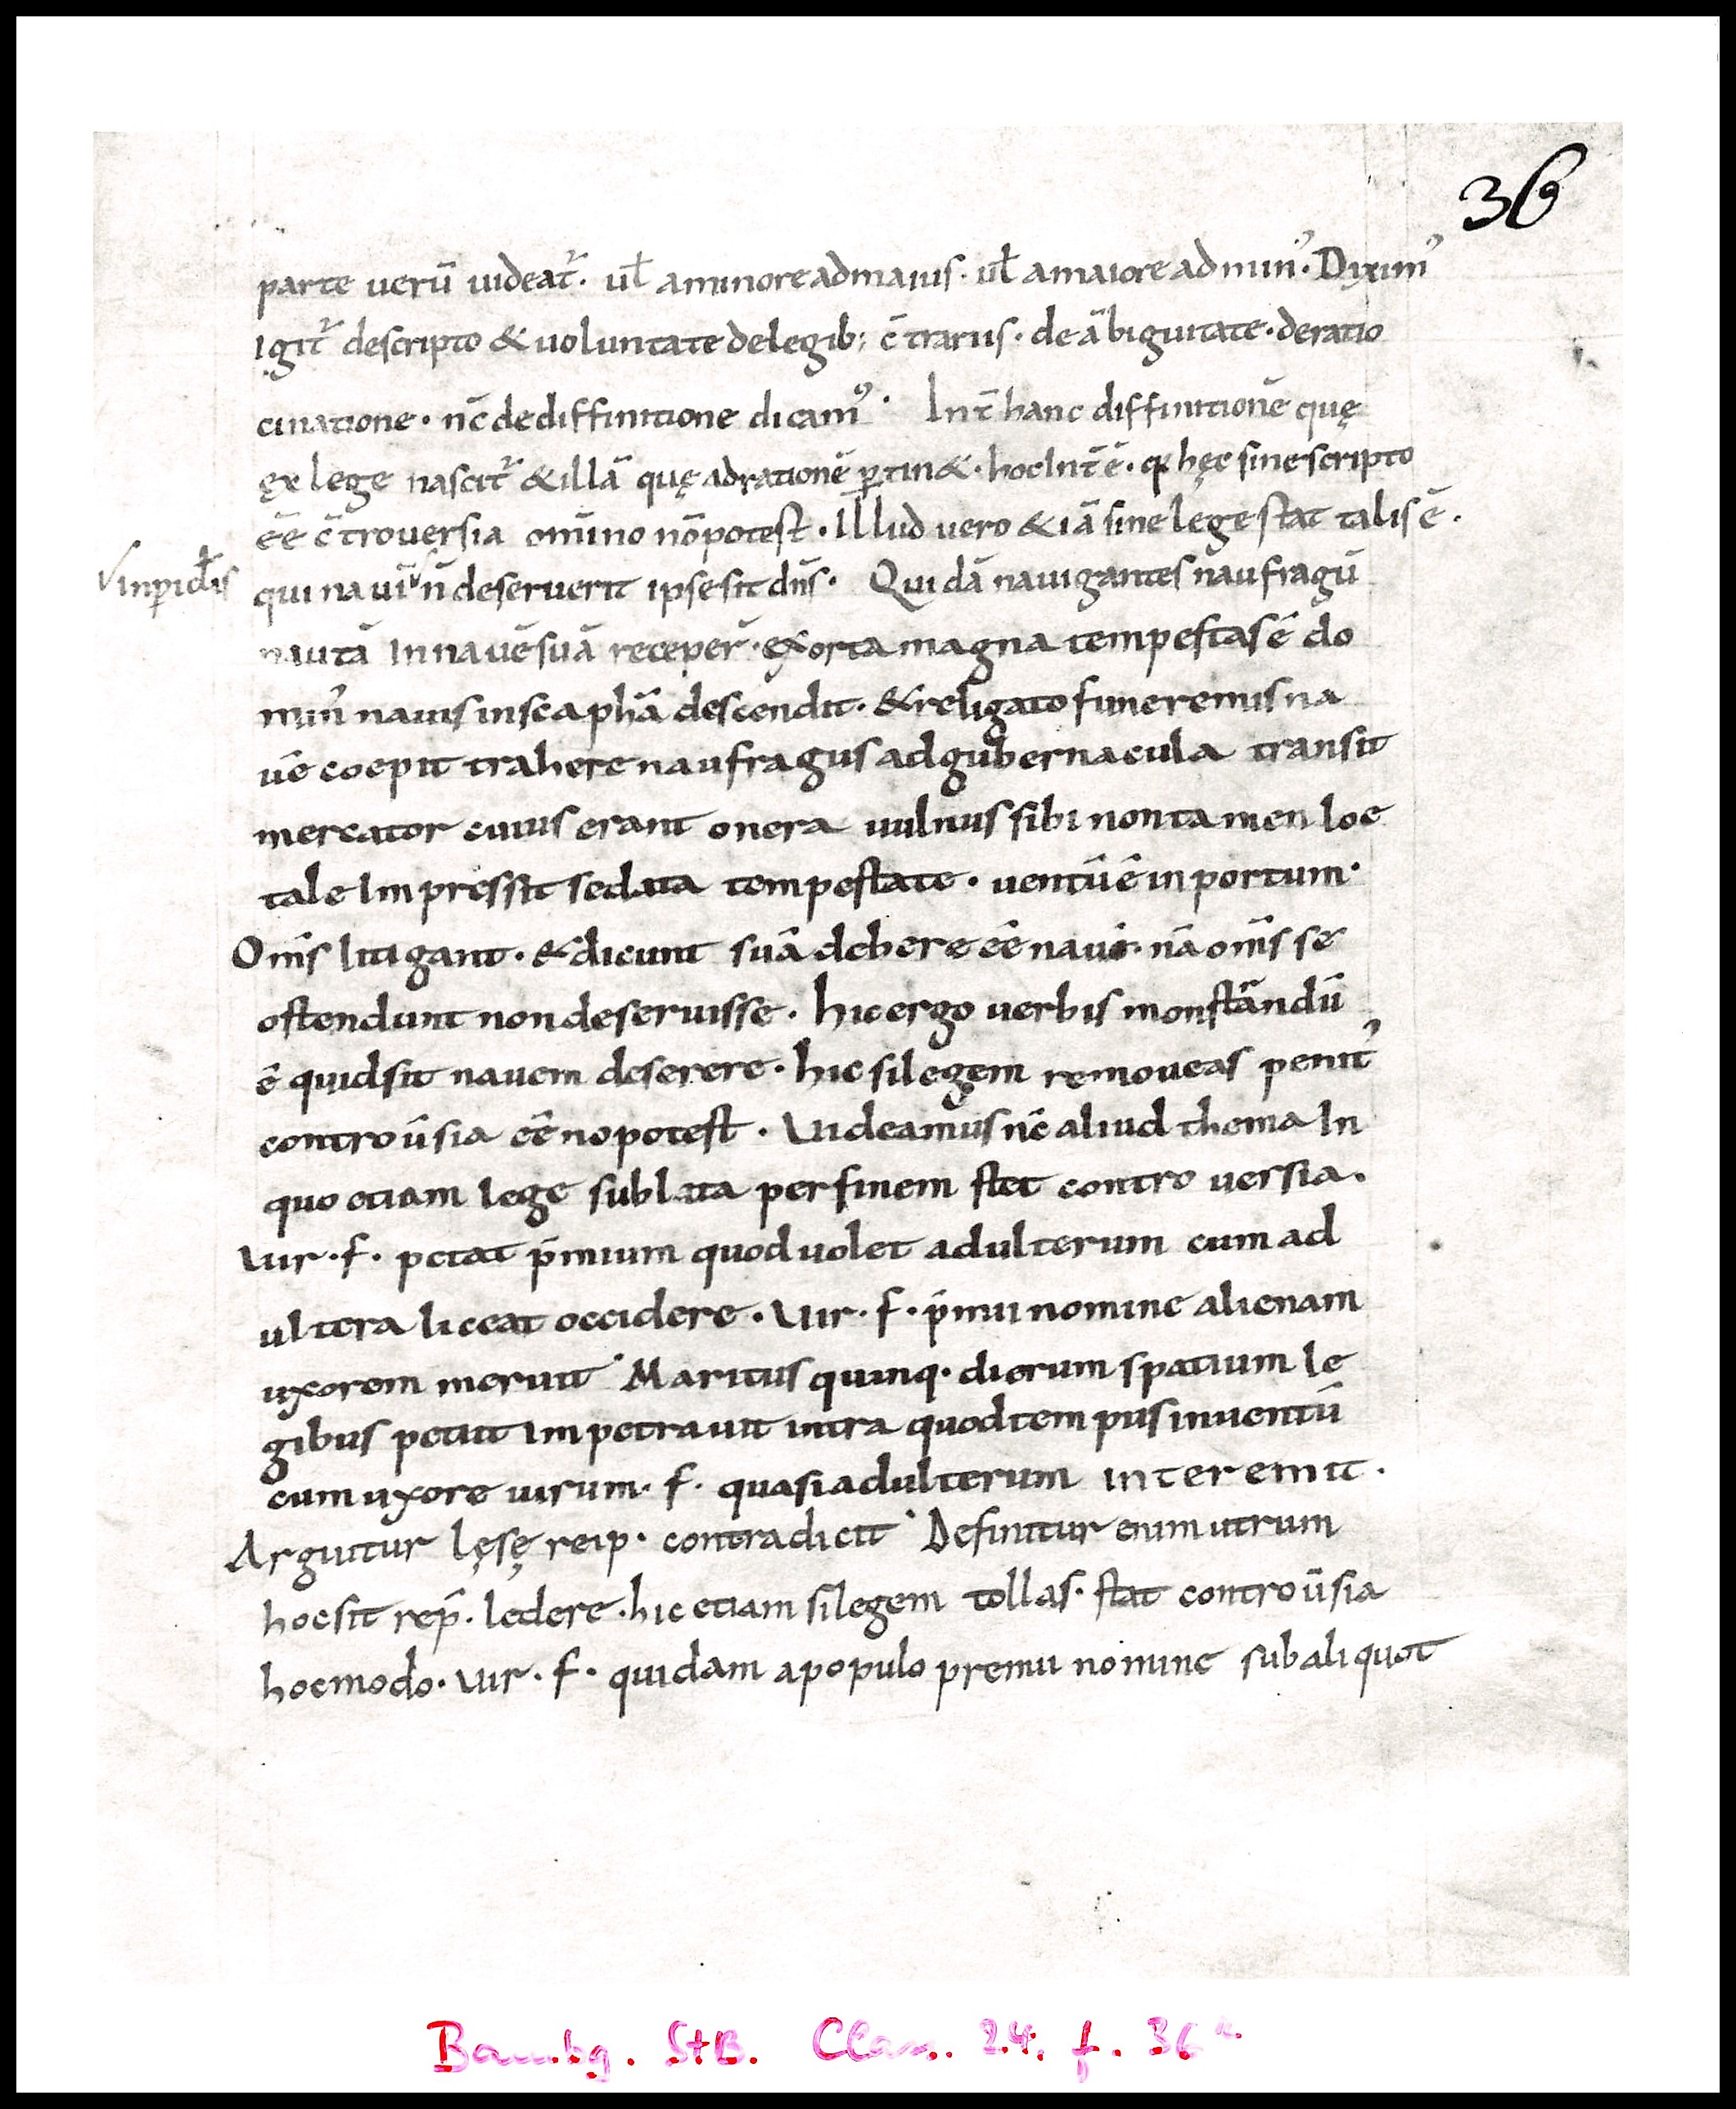 36
parte uerū uideat᷑. ul̄ aminoreadmaius. ul̄ amaiore ad minꝰ. Diximꝰ
igit᷑ descripto & uoluntate delegib; c̄trariis. de ābiguitate. deratio
cinatione. nc̄ dediffinitione dicamꝰ. Int̄ hanc diffinitionē quę
ęx lege nascit᷑ & illā quę adrationē ꝑtin&. hocInt̄ ē. qđ hęc sinescripto
ēē c̄trouersia om̄ino nōpotest. Illud uero & iā sinelege stat talis ē.
√inꝑicl̄is
qui nauī √ n̄ deseruerit ipsesit dn̄s. Quidā nauigantes naufragū
nautā Innauēsuā receper̄. exorta magna tempestas ē do
minꝰ nauis inscaphā descendit. & religato funeremisna
uē coepit trahere naufragus adgubernacula transit
mercator cuius erant onera uulnus sibi nontamen loe
tale Impressit sedata tempestate. uentū ē inportum.
Om̄s litigant. & dicunt suā debere ēē naui. nā om̄s se
ostendunt nondeseruisse. hic ergo uerbis monstrandū
ē quidsit nauem deserere. hic silegem remoueas penitꝰ
controūsia ēē nopotest. Uideamus nc̄ aliud thema In
quo etiam lege sublata per finem stet controuersia.
Uir. f. petat p̄mium quoduolet adulterum cum ad
ultera liceat occidere. Uir. f. p̄mii nomine alienam
uxorem meruit. Maritus quinq. dierum spatium le
gibus petiit Impetrauit intra quodtempus inuentū
cum uxore uirum. f. quasi adulterum interemit.
Arguitur lęsę reip. contradicit. Definitur enim utrum
hocsit rep̄. ledere. hic etiam silegem tollas. stat controūsia
hocmodo. Uir. f. quidam apopulo premii nomine sub aliquot
Bambg. StB. Class. 24. f. 36r